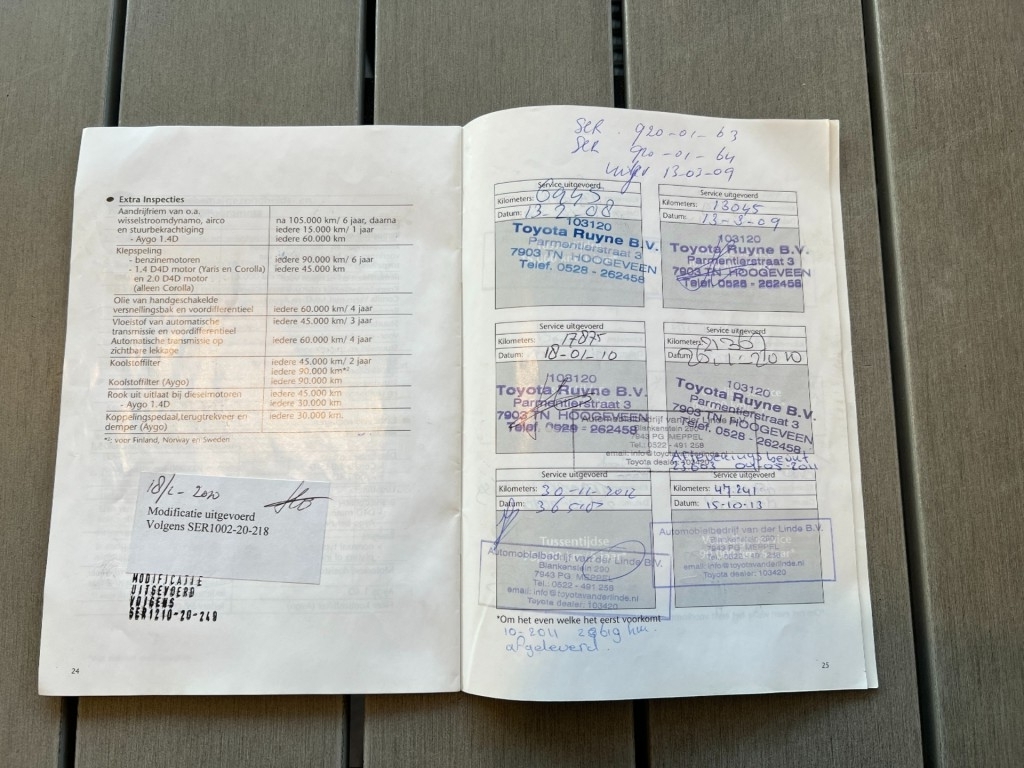 Extra Inspecties
Aandrijfriem van o.a.
wisselstroomdynamo, airco na 105.000 km/ 6 jaar, daarna
en stuurbekrachtiging iedere 15.000 km/ 1 jaar
- Aygo 1.4D iedere 60.000 km
Klepspeling
- benzinemotoren iedere 90.000 km/ 6 jaar
- 1.4 D4D motor (Yaris en Corolla) iedere 45.000 km
en 2.0 D4D motor
(alleen Corolla)
Olie van handgeschakelde
versnellingsbak en voordifferentieel iedere 60.000 km/ 4 jaar
Vloeistof van automatische iedere 45.000 km/ 3 jaar
transmissie en voordifferentieel
Automatische transmissie op iedere 60.000 km/ 4 jaar
zichtbare lekkage
Koolstoffilter iedere 45.000 km/ 2 jaar
iedere 90.000 km*²
Koolstoffilter (Aygo) iedere 90.000 km
Rook uit uitlaat bij dieselmotoren iedere 45.000 km
- Aygo 1.4D iedere 30.000 km
Koppelingspedaal,terugtrekveer en iedere 30.000 km
demper (Aygo)
*²: voor Finland, Norway en Sweden
Modificatie uitgevoerd
Volgens SER1002-20-218
MODIFICATIE
UITGEVOERD
VOLGENS
SER1210-20-249
24
SER. 920-01-63
SER 920-01-64
13-03-09
Service uitgevoerd
Kilometers:
Datum: 13-2-08
Toyota Ruyne B.V.
Parmentierstraat 3
7903 TN HOOGEVEEN
Telef. 0528 - 262458
Service uitgevoerd
Kilometers: 13045
Datum: 13-3-09
103120
Toyota Ruyne B.V.
Parmentierstraat 3
7903 TN HOOGEVEEN
Telef. 0528 - 262458
Service uitgevoerd
Kilometers: 17875
Datum: 18-01-10
103120
Toyota Ruyne B.V.
Parmentierstraat 3
7903 TN HOOGEVEEN
Telef. 0528 - 262458
Service uitgevoerd
Kilometers:
Datum:
103120
Toyota Ruyne B.V.
Parmentierstraat 3
7903 TN HOOGEVEEN
Telef. 0528 - 262458
Automobielbedrijf van der Linde B.V.
Blankenstein 290
7943 PG MEPPEL
Tel.: 0522 - 491 258
Toyota dealer:
Afleveringsbeurt
04-05-2011
Service uitgevoerd
Kilometers: 30-11-2012
Datum:
Tussentijdse
Automobielbedrijf van der Linde B.V.
Blankenstein 290
7943 PG MEPPEL
Tel.: 0522 - 491 258
email: info@toyotavanderlinde.nl
Toyota dealer: 103420
Service uitgevoerd
Kilometers: 47.241
Datum: 15-10-13
Automobielbedrijf van der Linde B.V.
Blankenstein 290
7943 PG MEPPEL
email: info@toyotavanderlinde.nl
Toyota dealer: 103420
*Om het even welke het eerst voorkomt
10-2011 km.
afgeleverd.
25